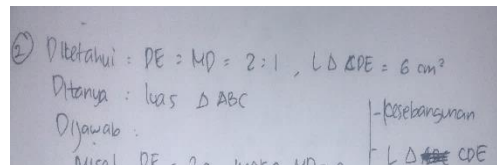 ② Diketahui : DE : MD = 2:1 , L Δ CDE = 6 cm²
Ditanya : luas Δ ABC
Dijawab :
- kesebangunan
L Δ CDE
Misal DE = 2a